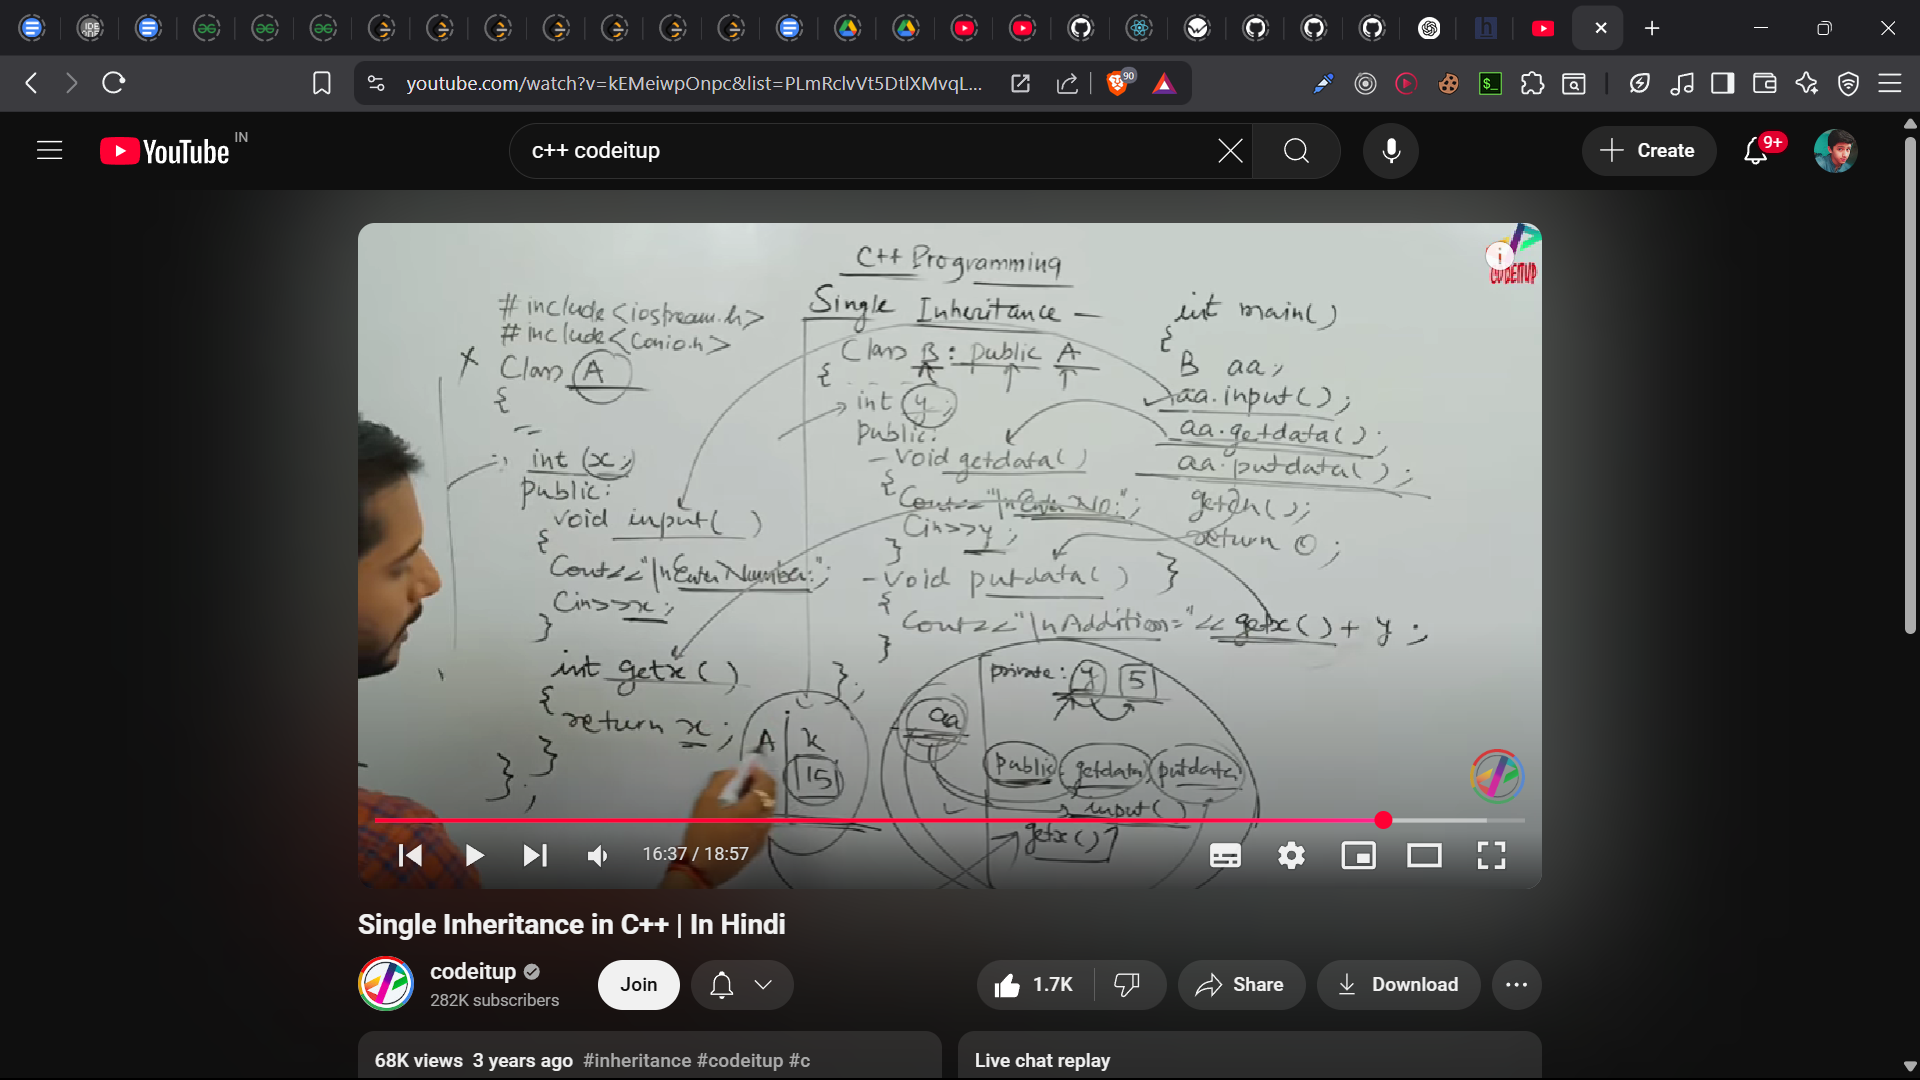 youtube.com/watch?v=kEMeiwpOnpc&list=PLmRclvVt5DtlXMvqL...
90
YouTube IN
c++ codeitup
Create
9+
C++ Programming
Single Inheritance
CODEITUP
#include<iostream.h>
#include<conio.h>
Class A
{
int x;
public:
void input( )
{
Cout<<"\nEnter Number:";
Cin>>x;
}
int getx( )
{
return x;
}
};
Class B : public A
{
int y;
public:
- void getdata( )
{
Cout<<"\nEnter No:";
Cin>>y;
}
- void putdata( )
{
Cout<<"\nAddition="<<getx()+ y ;
}
};
int main( )
{
B aa;
aa.input( );
aa.getdata( );
aa.putdata( );
getch( );
return 0;
}
A x
15
aa
private: y 5
public: getdata putdata
input( )
getx( )
16:37 / 18:57
Single Inheritance in C++ | In Hindi
codeitup
282K subscribers
Join
1.7K
Share
Download
68K views 3 years ago #inheritance #codeitup #c
Live chat replay